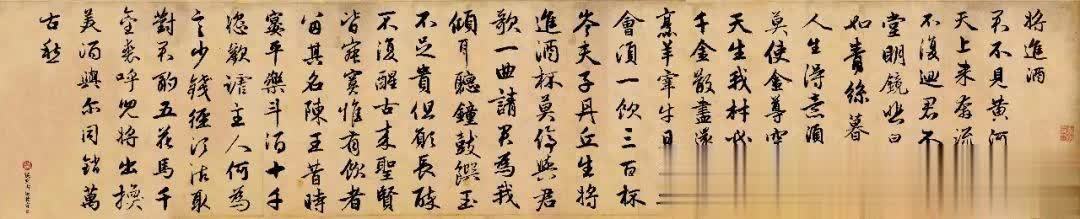 將進酒
君不見黃河
天上來奔流
不復迴君不
堂明鏡悲白
如青絲暮
人生得意須
莫使金尊空
天生我材必
千金散盡還
烹羊宰牛且
會須一飲三百杯
岑夫子丹丘生將
進酒杯莫停與君
歌一曲請君為我
傾耳聽鐘鼓饌玉
不足貴但願長醉
不復醒古來聖賢
皆寂寞惟有飲者
留其名陳王昔時
宴平樂斗酒十千
恣歡謔主人何為
言少錢徑須沽取
對君酌五花馬千
金裘呼兒將出換
美酒與爾同銷萬
古愁